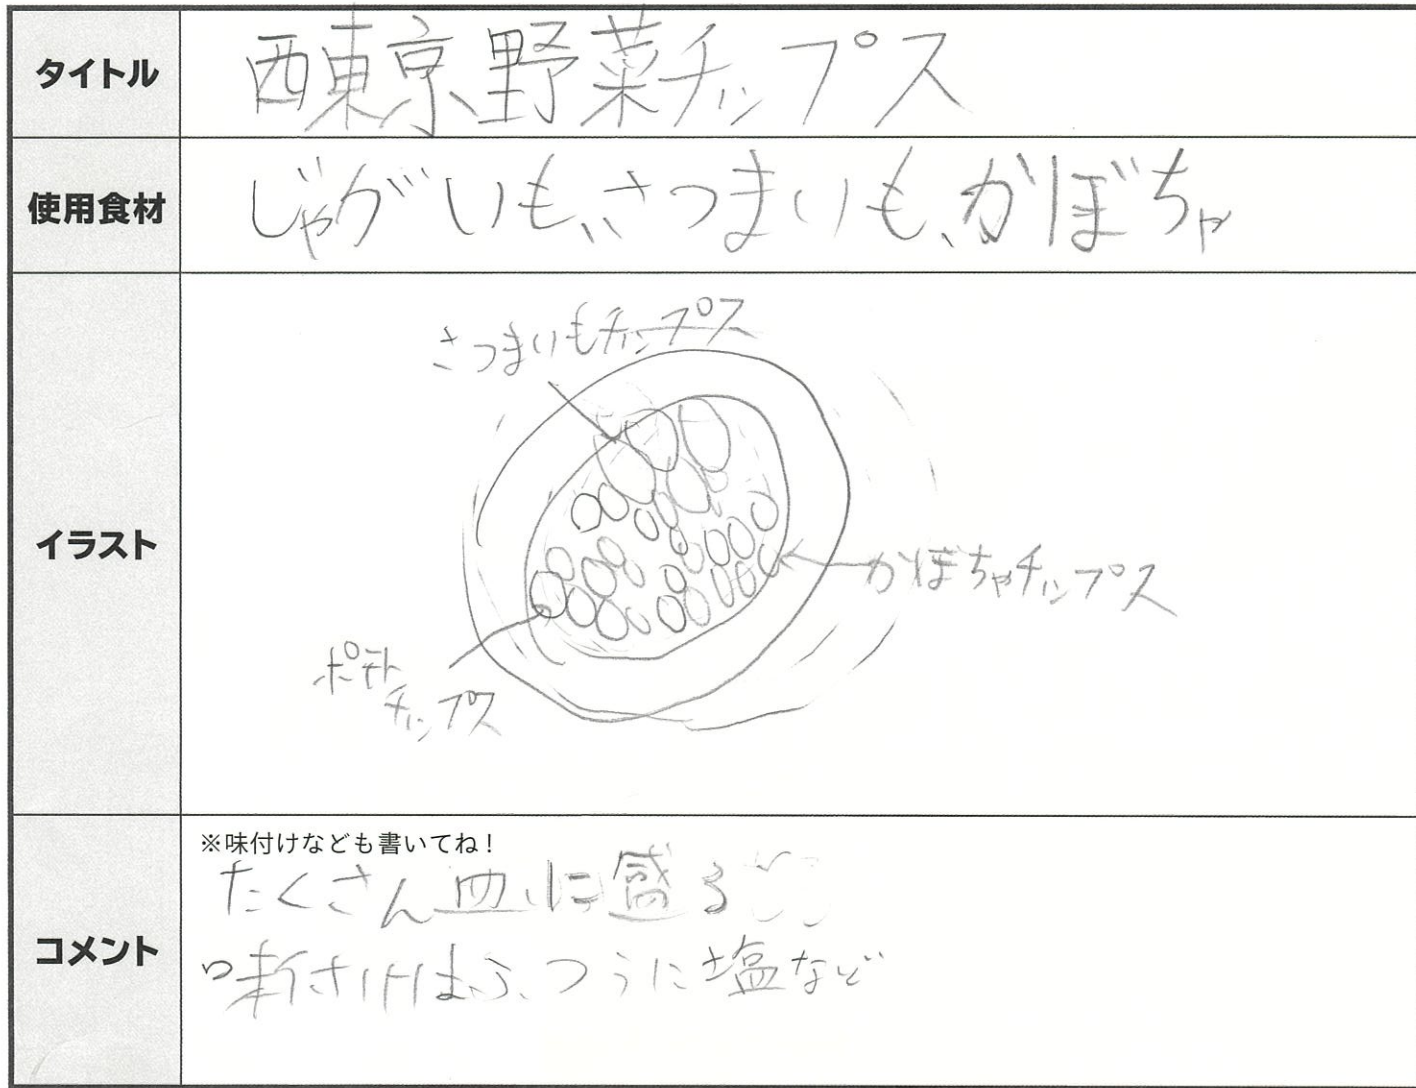 タイトル
西東京野菜チップス
使用食材
じゃがいも、さつまいも、かぼちゃ
イラスト
さつまいもチップス
かぼちゃチップス
ポテト
チップス
コメント
※味付けなども書いてね!
たくさん皿に盛る
味付けはふつうに塩など